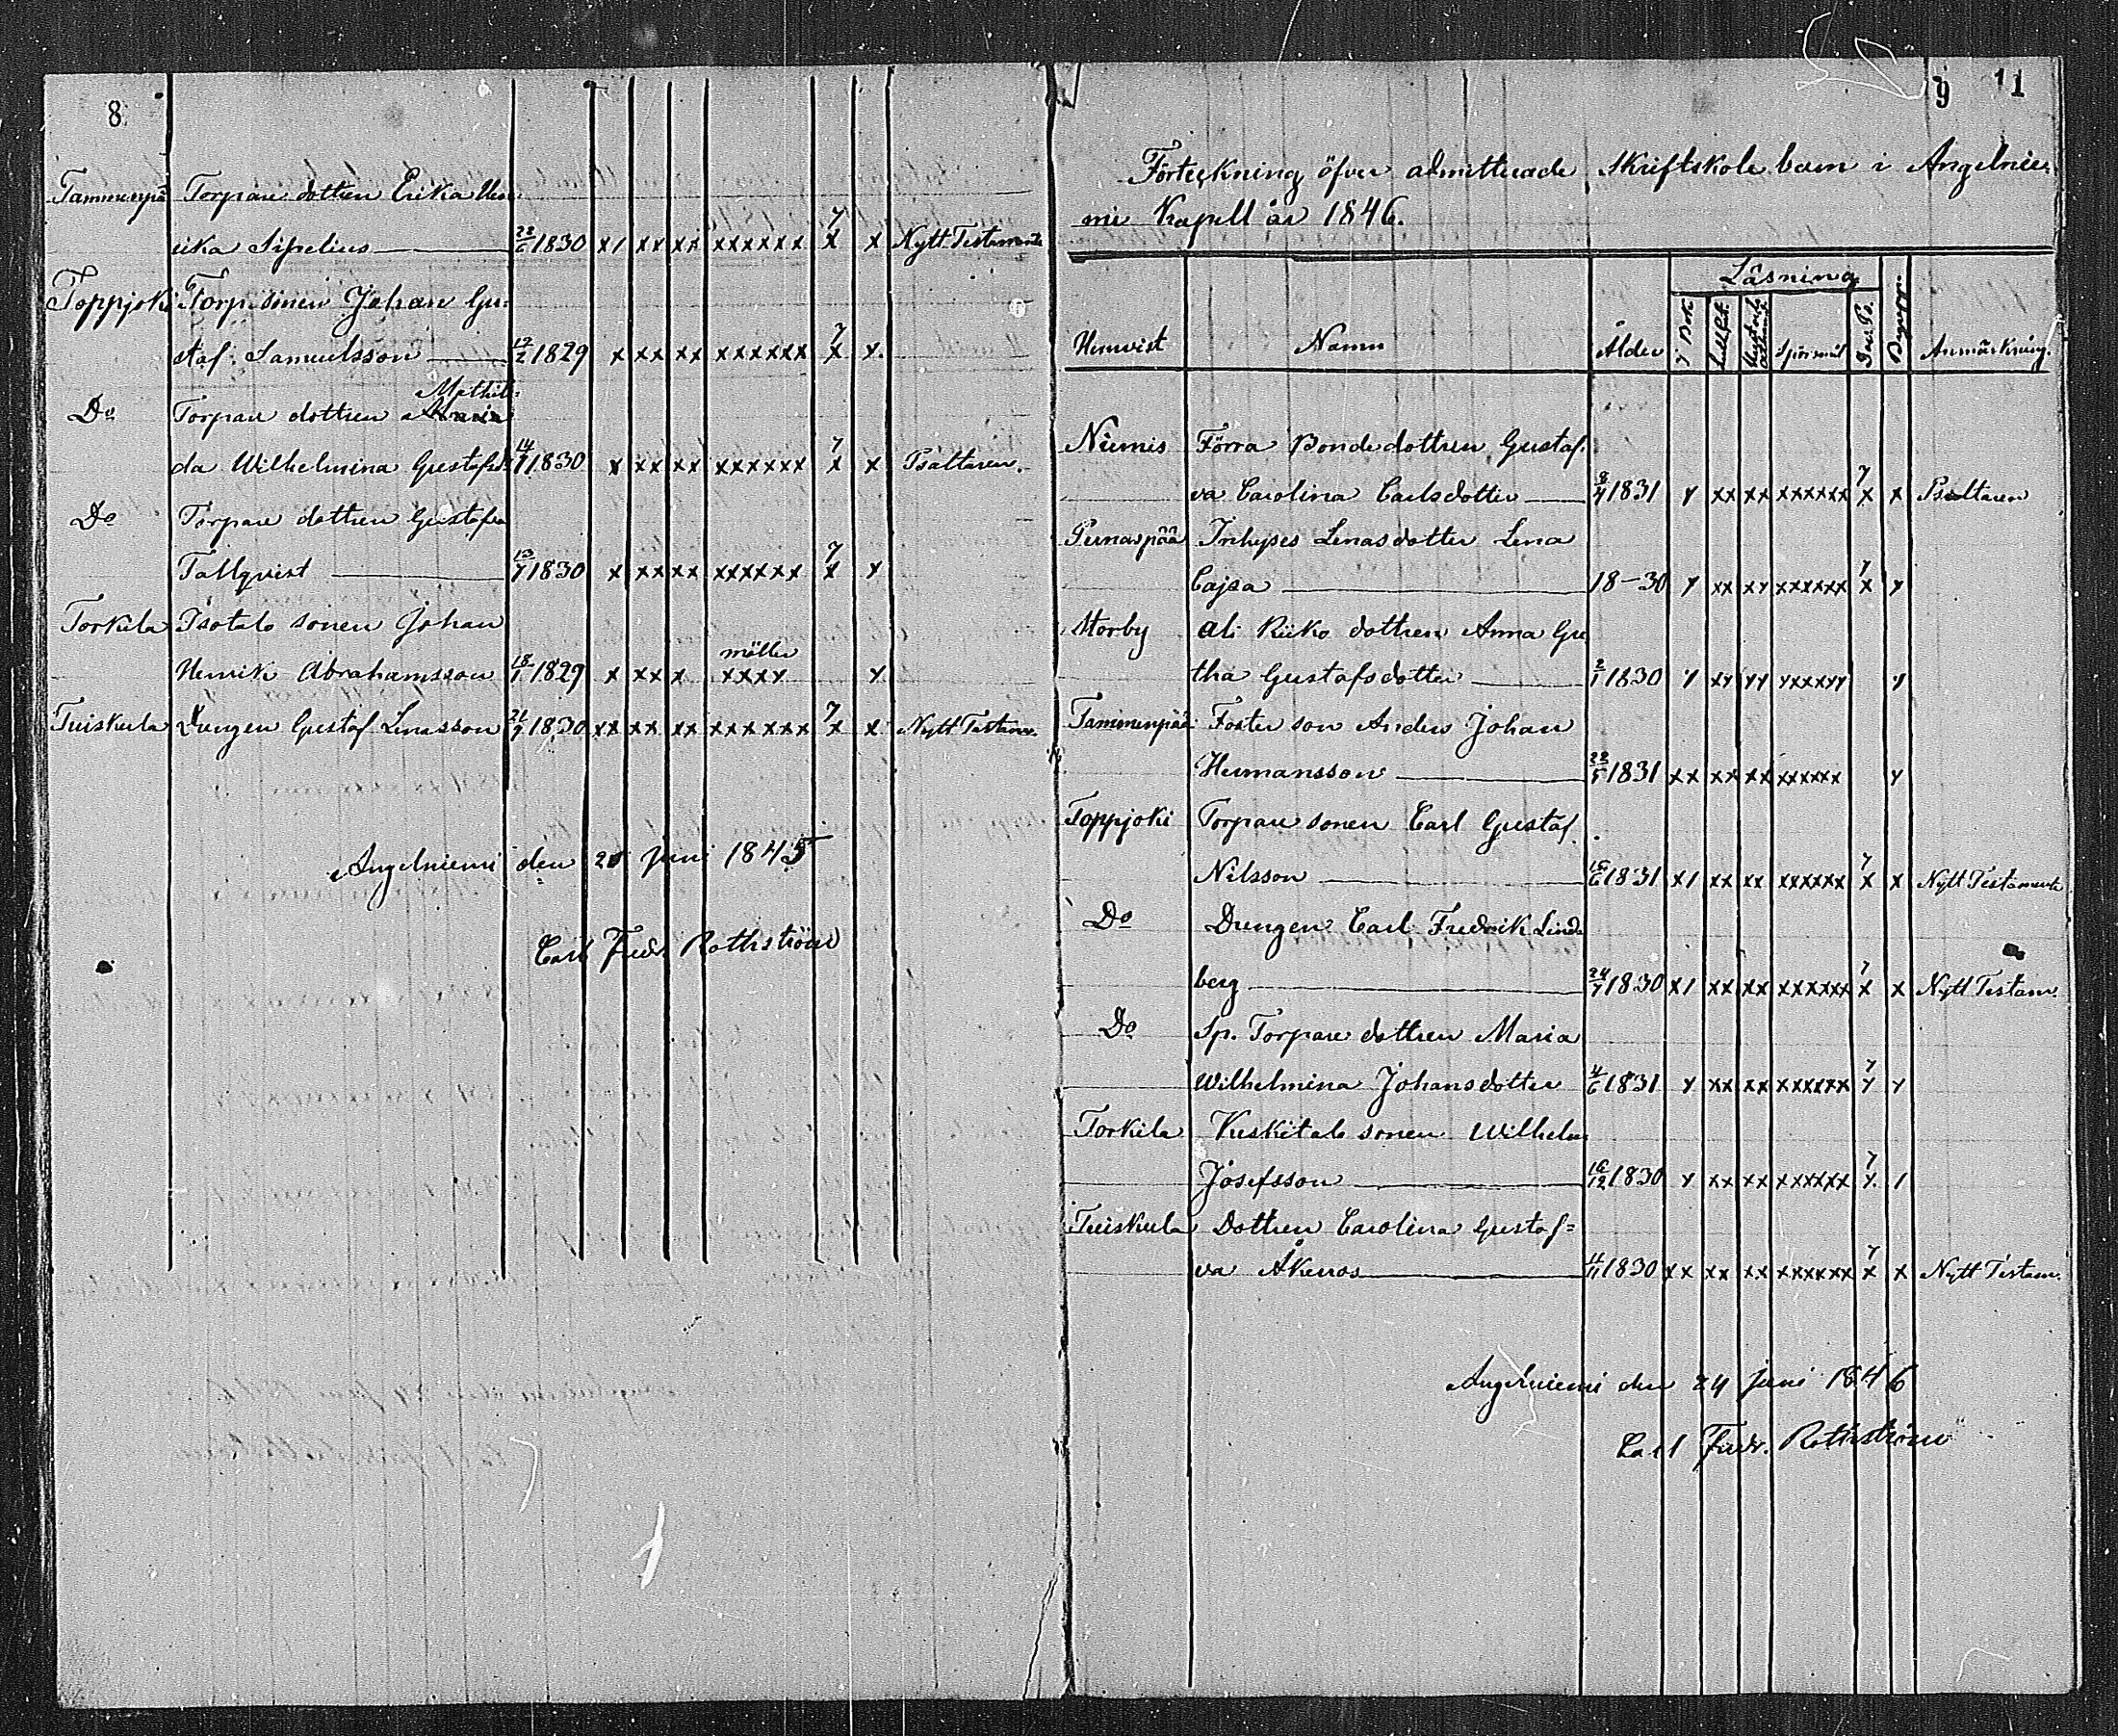 8
Tammenpä Torpare dottren Erika Hen
rika Sipelius 22/6 1830 x/ xx xx xxxxxx 7 x x Nytt Testamente
Toppjoki Torp. sonen Johan Gu:
staf. Samuelsson 19/2 1829 x xx xx xxxxxx 7 x x
Mathil:
Do Torpare dottren Maria
da Wilhelmina Gustafsd 14/7 1830 x xx xx xxxxxx 7 x x Psaltaren.
Do Torpare dottren Gustafva
Tallqvist 13/7 1830 x xx xx xxxxxx 7 x x
Torkila Isotalo sonen Johan
Henrik Abrahamsson 18/1 1829 x xx x xxxx x
Tuiskula Drengen Gustaf Linusson 21/9 1830 xx xx xx xxxxxx 7 x x Nytt Testam.
Angelniemi den 20 juni 1845
Carl Fredr. Rothström
9 11
Förteckning öfver admitterade Skriftskole barn i Angelnie:
mi Kapell år 1846.
Läsning
Hemvist Namn Ålder i Bok Spörsmål Begrepp. Anmärkning.
Niemis Förra Bonde dottren Gustaf.
va Carolina Carlsdotter 8/4 1831 x xx xx xxxxxx 7 x x Psaltaren
Pernaspää Inhyses Lenas dotter Lena
Cajsa 18–30 x xx xx xxxxxx 7 x x
Storby Ali Kiiko dottren Anna Gre
tha Gustafsdotter 2/1 1830 x xx xx xxxxxx x
Tammenpää Foster son Anders Johan
Hermansson 22/5 1831 xx xx xx xxxxxx x
Toppjoki Torpare sonen Carl Gustaf
Nilsson 15/6 1831 x/ xx xx xxxxxx 7 x x Nytt Testamente
Do Drengen Carl Fredrik Lind
berg 24/7 1830 x/ xx xx xxxxxx 7 x x Nytt Testam.
Do Sp. Torpare dottren Maria
Wilhelmina Johansdotter 4/6 1831 x xx xx xxxxxx 7 x x
Torkila Kuskitalo sonen Wilhelm
Josefsson 16/12 1830 x xx xx xxxxxx 7 x /
Tuiskula Dottren Carolina Gustaf=
va Åkerros 4/11 1830 xx xx xx xxxxxx 7 x x Nytt Testam.
Angelniemi den 24 juni 1846
Carl Fredr. Rothström